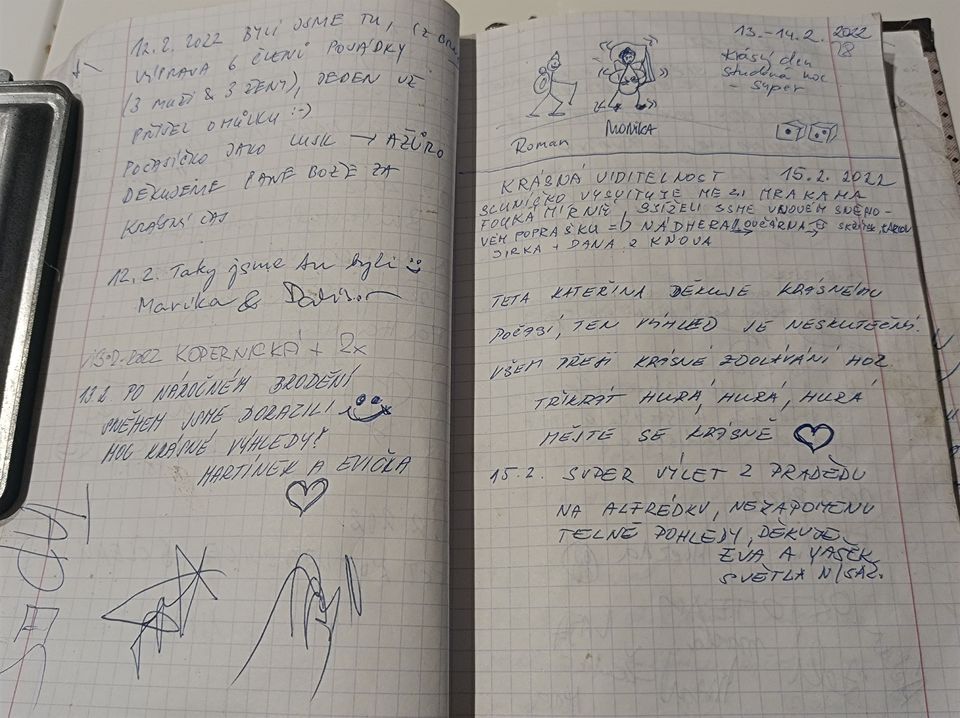 12.2. 2022 BYLI JSME TU,
VÝPRAVA 6 ČLENÁ
(3 MUŽI & 3 ŽENY), JEDEN UŽ
PŘIŠEL O HŮLKU :-)
POČASÍČKO JAKO LUSK → AŽŮRO
DĚKUJEME PANE BOŽE ZA
KRÁSNÝ ČAS
12.2. Taky jsme tu byli
Marika &
2022 KOPERNICKÁ + 2x
13.2. PO NÁROČNÉM BRODĚNÍ
SNĚHEM JSME DORAZILI
MOC KRÁSNÉ VÝHLEDY!
MARTÍNEK A EVIČKA
13.-14.2. 2022
Krásný den
studená noc
- super
Roman
MONIKA
KRÁSNÁ VIDITELNOST 15.2. 2022
SLUNÍČKO VYSVITUJE MEZI MRAKAMA
FOUKÁ MÍRNĚ, SJÍŽELI JSME V NOVÉM SNĚHO-
VÉM POPRAŠKU => NÁDHERA!! OVČÁRNA →
JIRKA + DANA Z KNOVA
TETA KATEŘINA DĚKUJE KRÁSNÉMU
POČASÍ, TEN VÝHLED JE NESKUTEČNÝ.
VŠEM PŘEJI KRÁSNÉ ZDOLÁVÁNÍ HOR.
TŘIKRÁT HURÁ, HURÁ, HURÁ
MĚJTE SE KRÁSNĚ
15.2. SUPER VÝLET Z PRADĚDU
NA ALFRÉDKU, NEZAPOMENU
TELNÉ POHLEDY, DĚKUJE
EVA A VAŠEK
SVĚTLÁ N/SÁZ.